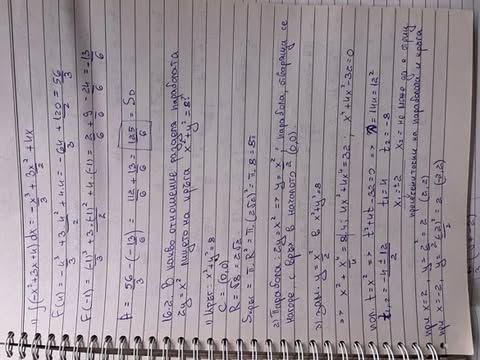 1) ∫(-x²+3x+4) dx = -x³/3 + 3x²/2 + 4x
F(4) = -4³/3 + 3.4²/2 + 4.4 = -64/3 + 120/2 = 56/3
F(-1) = -(-1)³/3 + 3.(-1)²/2 + 4.(-1) = 2/6 + 9/6 - 24/6 = -13/6
A = 56/3 - (-13/6) = 112/6 + 13/6 = 125/6 = S₀
16.2. В какво отношение разделя параболата
2y = x² лицето на кръга x²+y² = 8?
1) Кръг: x²+y² = 8
C = (0,0)
R = √8 = 2√2
Sкръг = π.R² = π.(2√2)² = π.8 = 8π
2) Парабола: 2y = x² => y = x²/2 ; парабола, отваряща се
нагоре, с връх в началото (0,0)
3) зам. y = x²/2 в x²+y² = 8
=> x² + x⁴/4 = 8 |.4 ; 4x²+x⁴ = 32 ; x⁴+4x²-32 = 0
пол. t = x² => t²+4t-32 = 0 => D = 144 = 12²
t₁,₂ = -4 ± 12 / 2 t₁ = 4 t₂ = -8
x₁ = ±2 x₂ = не може да е отриц.
пресечни точки на параболата и кръга
при x = 2, y = 2²/2 = 2 (2,2)
при x = -2, y = (-2)²/2 = 2 (-2,2)